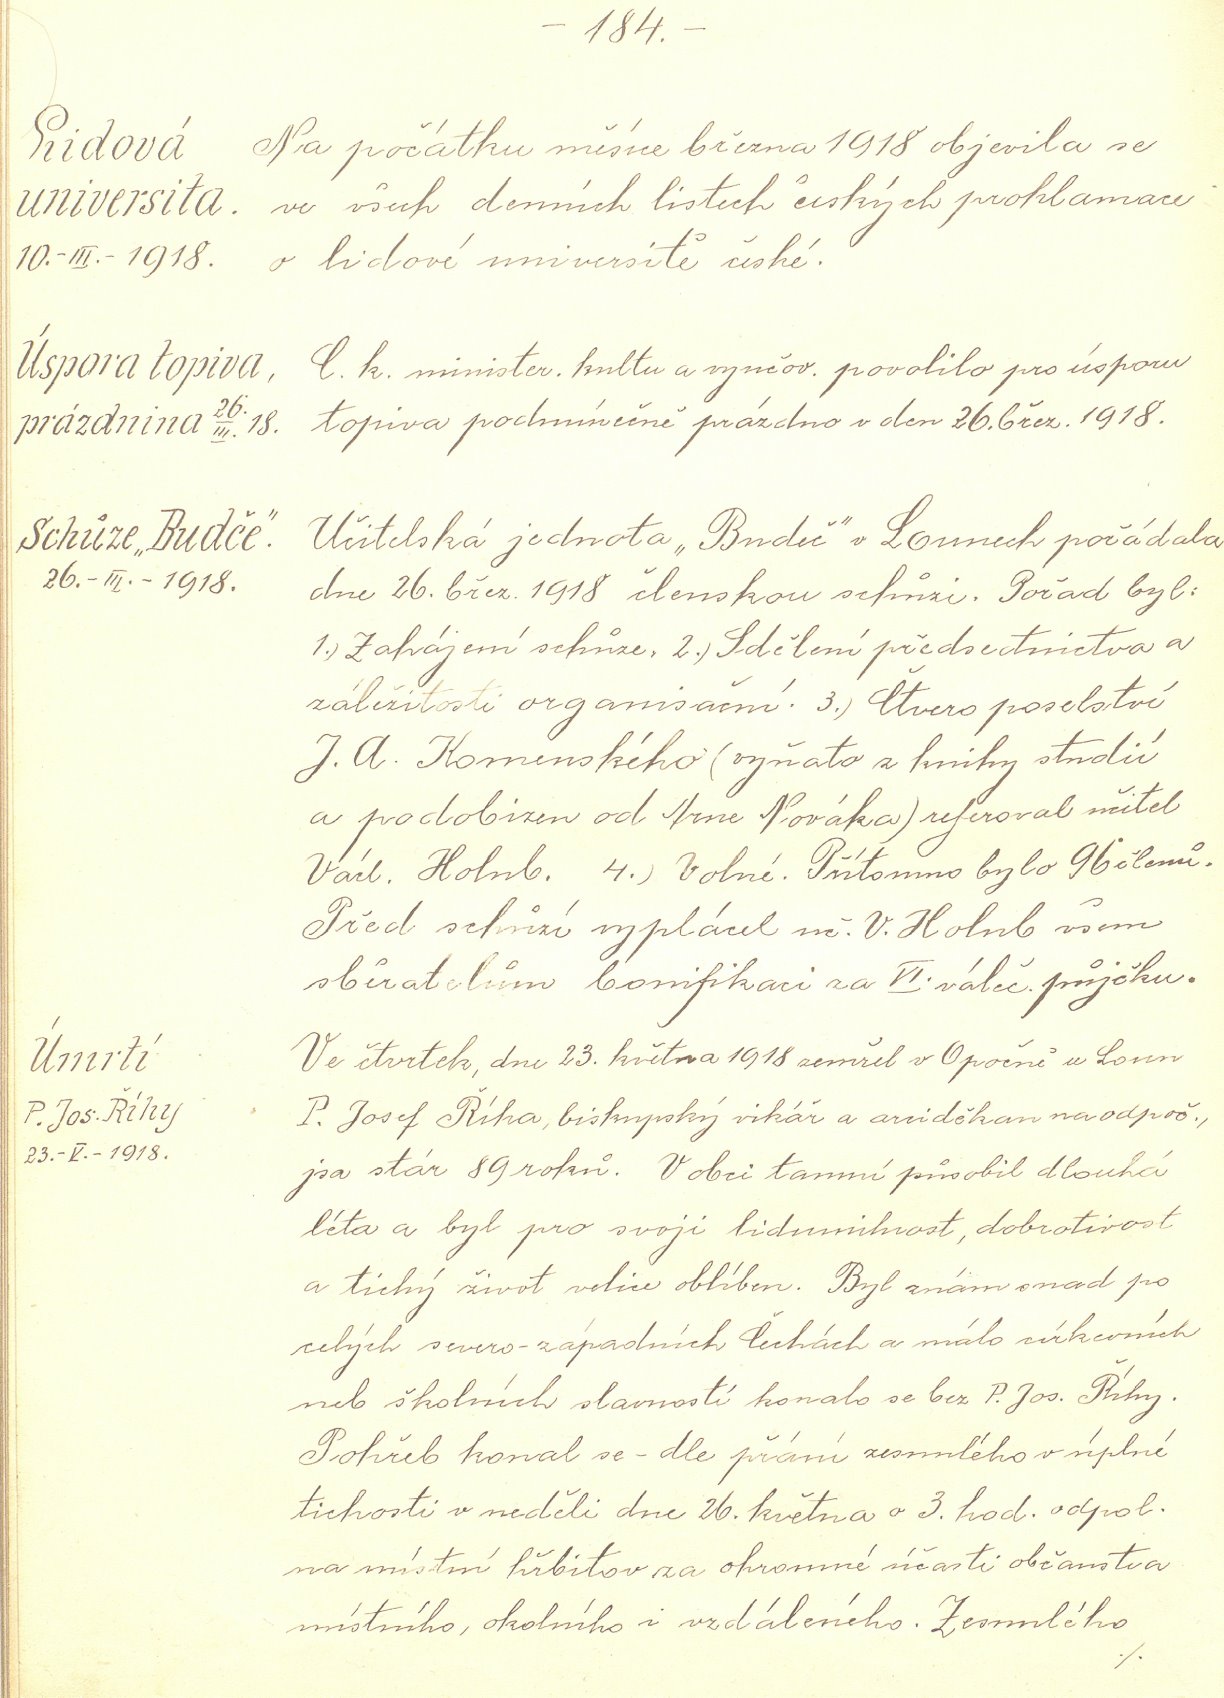 – 184. –
Lidová
universita.
10.-III.-1918.
Na počátku měsíce března 1918 objevila se
ve všech denních listech českých proklamace
o lidové universitě české.
Úspora topiva,
prázdnina 26./III. 18.
C. k. minister. kultu a vyučov. povolilo pro úsporu
topiva podmínečně prázdno v den 26. břez. 1918.
Schůze „Budče".
26.-III.-1918.
Učitelská jednota „Budeč" v Lounech pořádala
dne 26. břez. 1918 členskou schůzi. Pořad byl:
1.) Zahájení schůze. 2.) Sdělení předsednictva a
záležitosti organisační. 3.) Čtvero poselství
J. A. Komenského (vyňato z knihy studií
a podobizen od Arne Nováka) referoval učitel
Václ. Holub. 4.) Volné. Přítomno bylo 96 členů.
Před schůzí vyplácel uč. V. Holub všem
sběratelům bonifikaci za VI. váleč. půjčku.
Úmrtí
P. Jos. Říhy
23.-V.-1918.
Ve čtvrtek, dne 23. května 1918 zemřel v Opočně u Loun
P. Josef Říha, biskupský vikář a arciděkan na odpoč.,
jsa stár 89 roků. V obci tamní působil dlouhá
léta a byl pro svoji lidumilnost, dobrotivost
a tichý život velice oblíben. Byl znám snad po
celých severo-západních Čechách a málo církevních
neb školních slavností konalo se bez P. Jos. Říhy.
Pohřeb konal se – dle přání zesnulého v úplné
tichosti v neděli dne 26. května o 3. hod. odpol.
na místní hřbitov za ohromné účasti občanstva
místního, okolního i vzdáleného. Zesnulého
./.